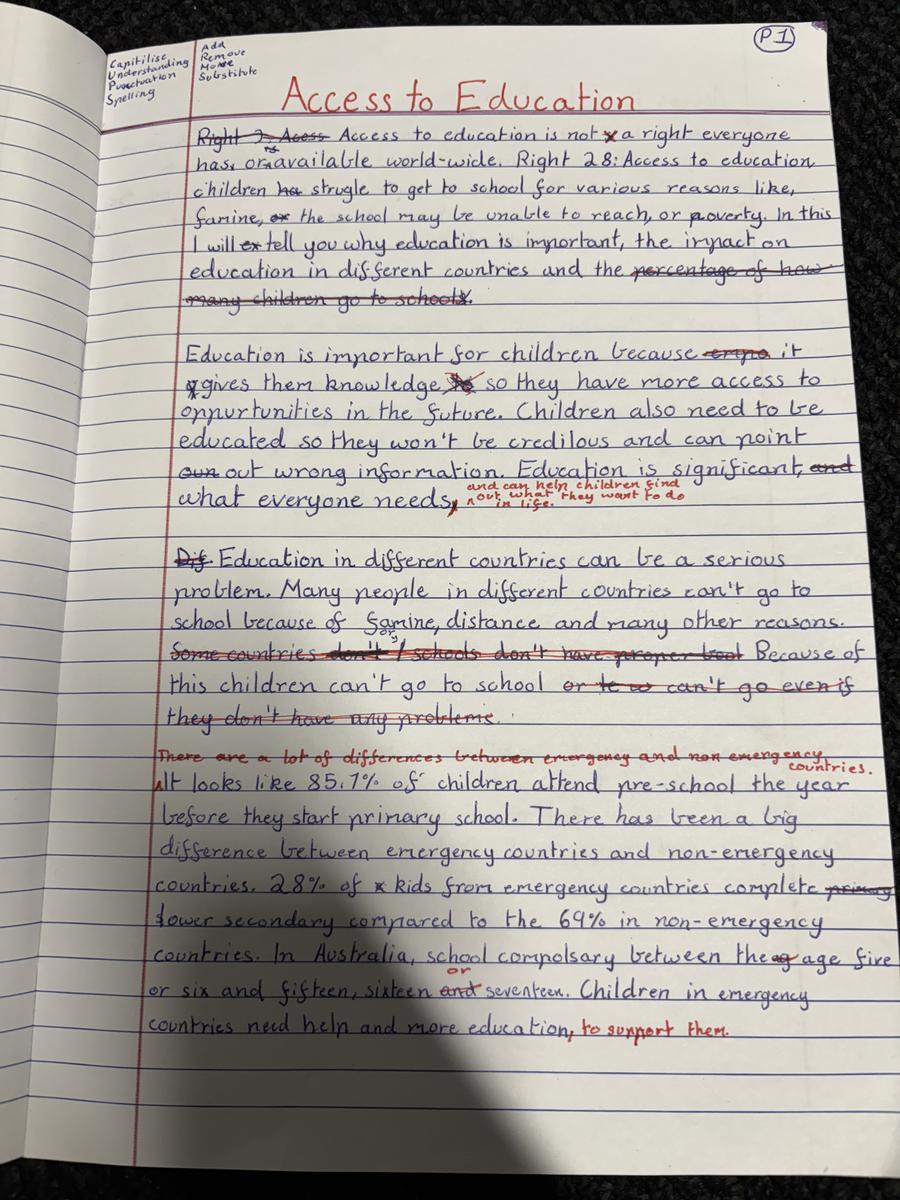 P1
Capitilise
Understanding
Punctuation
Spelling
Add
Remove
Move
Substitute
Access to Education
Right Acess Access to education is not a right everyone
has, or is available world-wide. Right 28: Access to education
children ha strugle to get to school for various reasons like,
famine, or the school may be unable to reach, or poverty. In this
I will ex tell you why education is important, the impact on
education in different countries and the percentage of how
many children go to schools.
Education is important for children because it
gives them knowledge so they have more access to
oppurtunities in the future. Children also need to be
educated so they won't be credilous and can point
oun out wrong information. Education is significant, and
what everyone needs, and can help children find
out what they want to do
in life.
Dif Education in different countries can be a serious
problem. Many people in different countries can't go to
school because of famine, distance and many other reasons.
Some countries don't / schools don't have proper Because of
this children can't go to school or can't go even if
they don't have any problems.
There are a lot of differences between emergency and non emergency
countries.
It looks like 85.7% of children attend pre-school the year
before they start primary school. There has been a big
difference between emergency countries and non-emergency
countries. 28% of kids from emergency countries complete primary
lower secondary compared to the 69% in non-emergency
countries. In Australia, school compolsary between the ag age five
or six and fifteen, sixteen and or seventeen. Children in emergency
countries need help and more education, to support them.